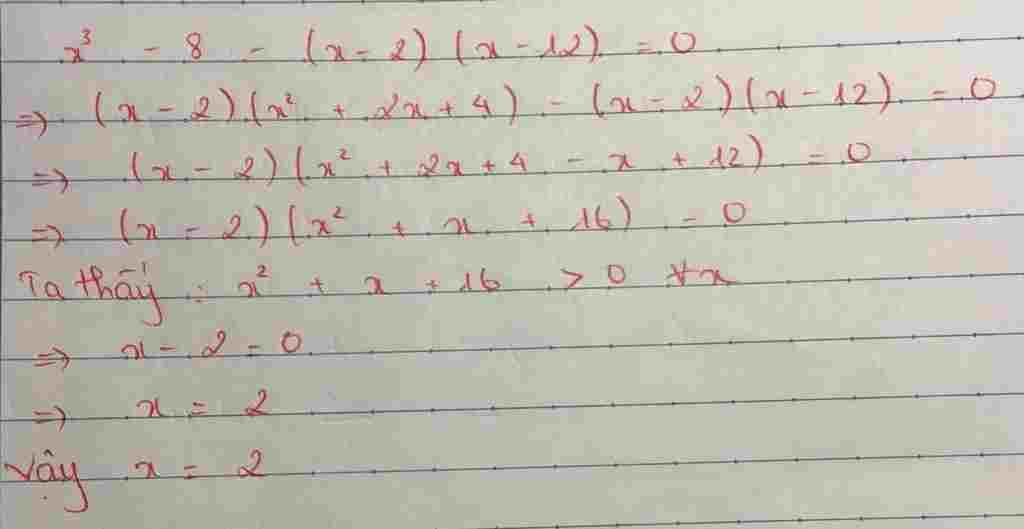 x³ - 8 - (x - 2) (x - 12) = 0
=> (x - 2) (x² + 2x + 4) - (x - 2) (x - 12) = 0
=> (x - 2) (x² + 2x + 4 - x + 12) = 0
=> (x - 2) (x² + x + 16) = 0
Ta thấy : x² + x + 16 > 0 ∀x
=> x - 2 = 0
=> x = 2
Vậy x = 2